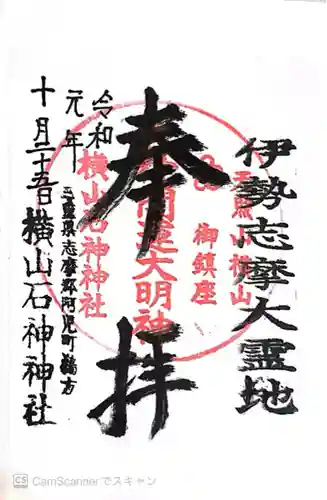 伊勢志摩大霊地
奉拝
横山
御鎮座
開運大明神
横山石神神社
令和
元年
三重県志摩郡阿児町鵜方
十月二十五日横山石神神社
CS CamScannerでスキャン